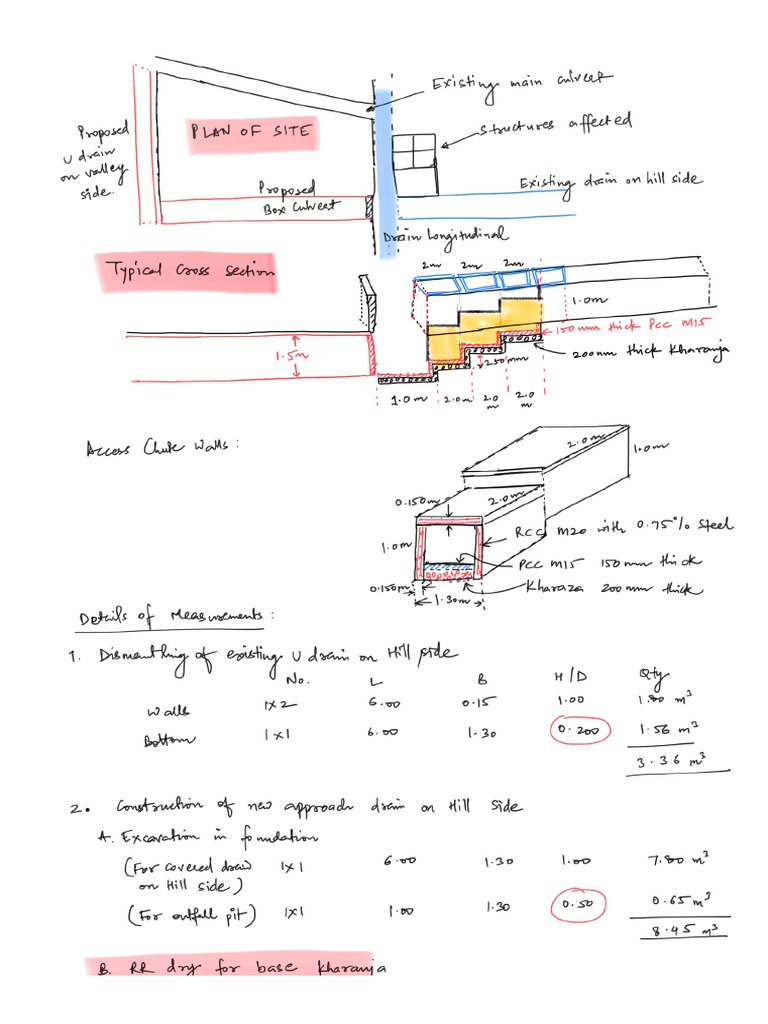 Existing main culvert
Proposed
U drain
on valley
side.
PLAN OF SITE
Structures affected
Existing drain on hill side
Proposed
Box Culvert
Drain Longitudinal
Typical Cross section
2m 2m 2m
1.0m
150mm thick PCC M15
200mm thick Kharanja
1.5m
250mm
1.0m 2.0m 2.0 m 2.0 m
Access Chute Walls:
2.0m
1.0m
0.150m
2.0m
RCC M20 with 0.75% Steel
1.0m
PCC M15 150mm thick
Kharaza 200mm thick
0.150m
1.30m
Details of Measurements:
1. Dismantling of existing U drain on Hill side
No. L B H/D Qty
Walls 1x2 6.00 0.15 1.00 1.80 m³
Bottom 1x1 6.00 1.30 0.200 1.56 m³
3.36 m³
2. Construction of new approach drain on Hill side
A. Excavation in foundation
(For covered drain 1x1 6.00 1.30 1.00 7.80 m³
on Hill side)
(For outfall pit) 1x1 1.00 1.30 0.50 0.65 m³
8.45 m³
B. RR dry for base Kharanja